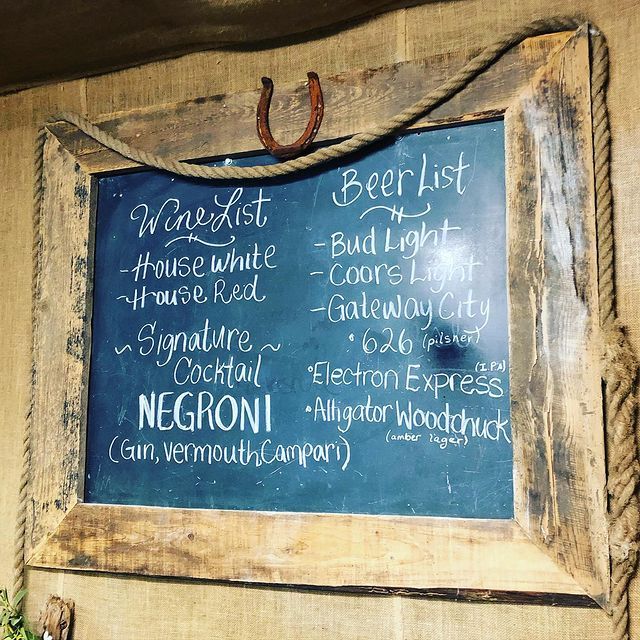 Wine List
- House white
- House Red
~ Signature ~
Cocktail
NEGRONI
(Gin, Vermouth, Campari)
Beer List
- Bud Light
- Coors Light
- Gateway City
• 626 (pilsner)
• Electron Express (I.P.A)
• Alligator Woodchuck
(amber lager)